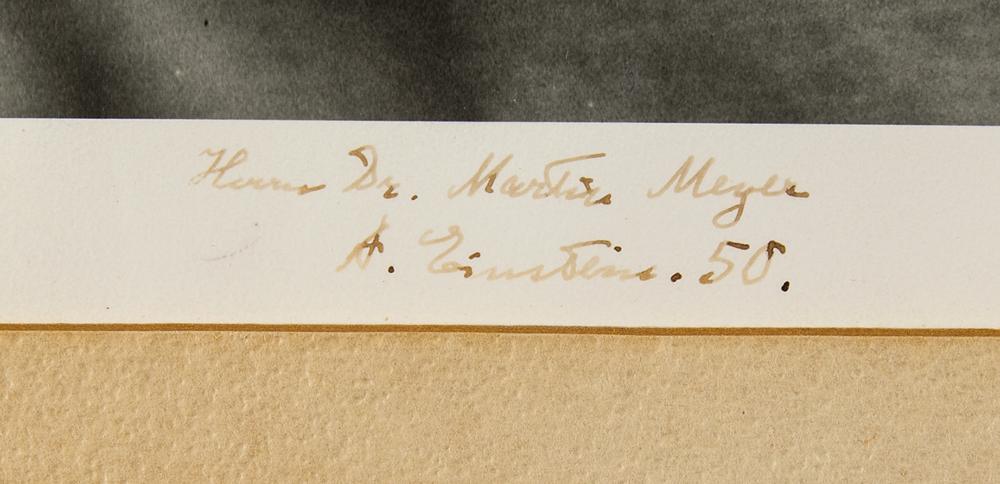 Herrn Dr. Martin Meyer
A. Einstein. 50.